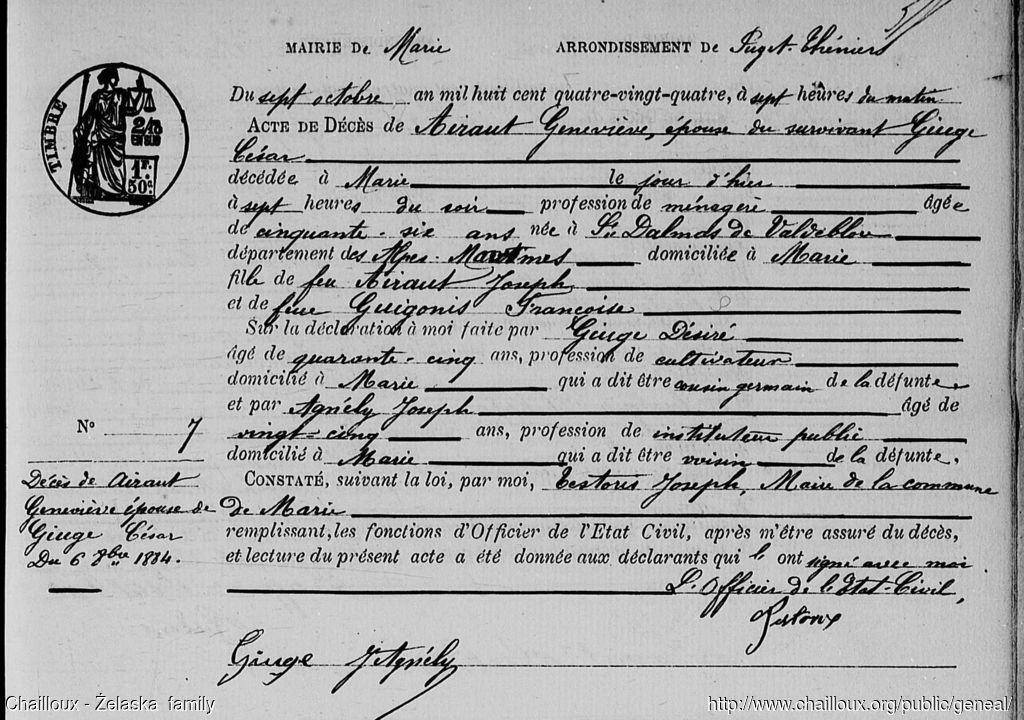 MAIRIE DE Marie ARRONDISSEMENT DE Puget-Théniers
TIMBRE
2/10
EN SUS
1F.
50c.
Du sept octobre an mil huit cent quatre-vingt-quatre, à sept heures du matin
ACTE DE DÉCÈS de Airaut Geneviève, épouse du survivant Giuge
César
décédée à Marie le jour d'hier
à sept heures du soir profession de ménagère âgée
de cinquante-six ans née à St Dalmas de Valdeblore
département des Alpes-Maritimes domiciliée à Marie
fille de feu Airaut Joseph
et de feue Guigonis Françoise
Sur la déclaration à moi faite par Giuge Désiré
âgé de quarante-cinq ans, profession de cultivateur
domicilié à Marie qui a dit être cousin germain de la défunte,
et par Agnély Joseph âgé de
vingt-cinq ans, profession de instituteur public
domicilié à Marie qui a dit être voisin de la défunte.
CONSTATÉ, suivant la loi, par moi, Testoris Joseph, Maire de la commune
de Marie
remplissant, les fonctions d'Officier de l'Etat Civil, après m'être assuré du décès,
et lecture du présent acte a été donnée aux déclarants qui l' ont signé avec moi
L'Officier de l'Etat-Civil,
Giuge J Agnély
No 7
Décès de Airaut
Geneviève épouse de
Giuge César
Du 6 8bre 1884.
Chailloux - Żelaska family
http://www.chailloux.org/public/geneal/